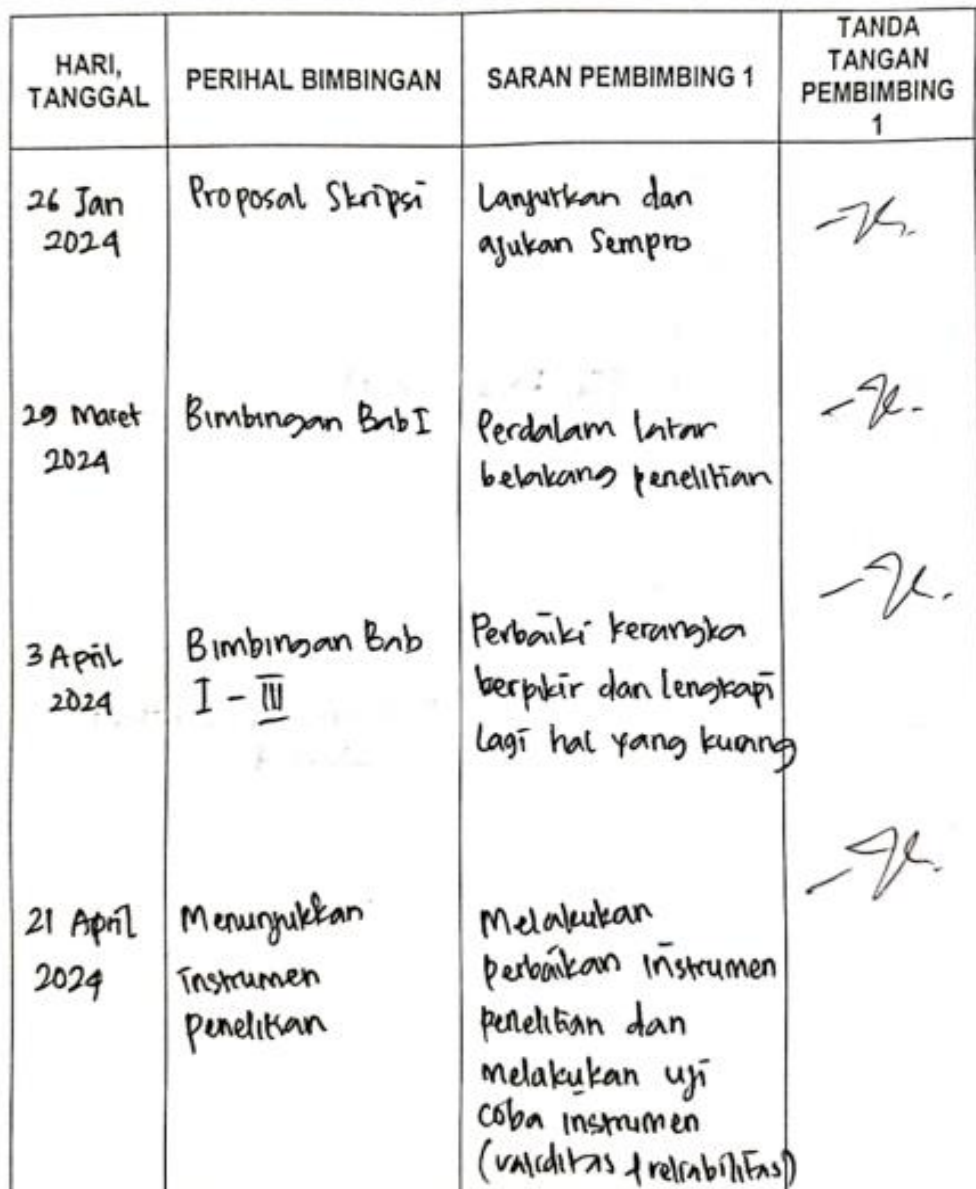 HARI,
TANGGAL
PERIHAL BIMBINGAN
SARAN PEMBIMBING 1
TANDA
TANGAN
PEMBIMBING
1
26 Jan
2024
Proposal Skripsi
Lanjutkan dan
ajukan Sempro
29 Maret
2024
Bimbingan Bab I
Perdalam latar
belakang penelitian
3 April
2024
Bimbingan Bab
I - III
Perbaiki kerangka
berpikir dan lengkapi
lagi hal yang kurang
21 April
2024
Menunjukkan
instrumen
penelitian
Melakukan
perbaikan instrumen
penelitian dan
melakukan uji
coba instrumen
(validitas & reliabilitas)